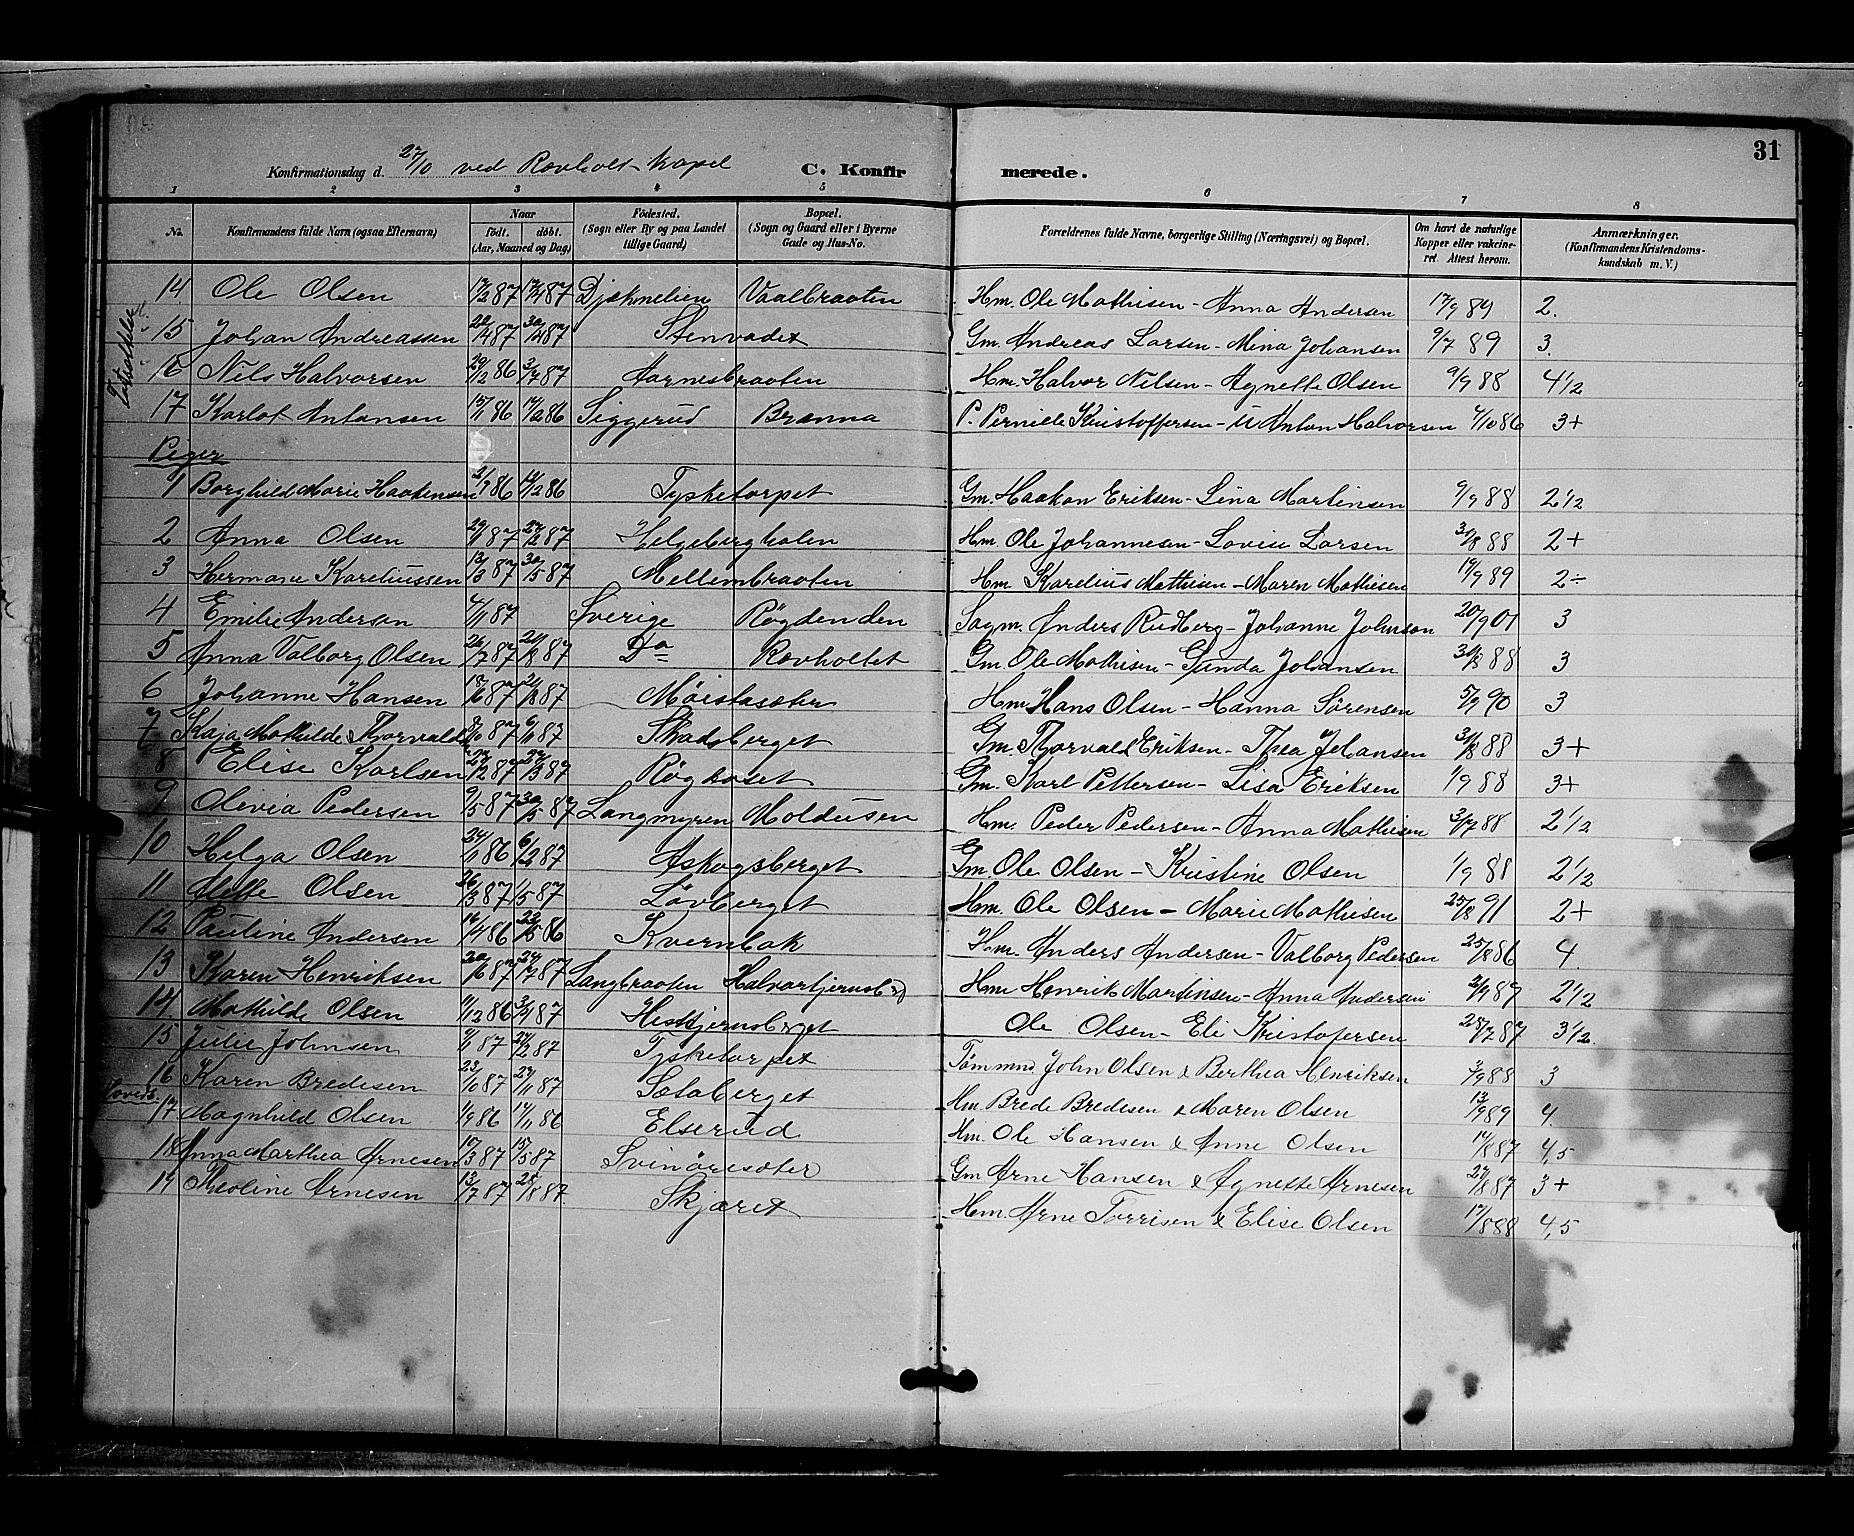 31
Konfirmationsdag d. 27/10 ved Rovholt kapel C. Konfirmerede.
1 2 3 4 5 6 7 8
No. Konfirmandens fulde Navn (ogsaa Efternavn) Naar født. døbt. (Aar, Maaned og Dag) Fødested. (Sogn eller By og paa Landet tillige Gaard) Bopæl. (Sogn og Gaard eller i Byerne Gade og Hus-No. Forældrenes fulde Navne, borgerlige Stilling (Næringsvei) og Bopæl. Om havt de naturlige Kopper eller vaccineret. Attest herom. Anmærkninger. (Konfirmandens Kristendomskundskab m. V.)
14 Ole Olsen 17/2 87 17/4 87 Djæknelien Vaalbraaten Hm. Ole Mathisen - Anna Andersen 17/9 89 2.
15 Johan Andreassen 20/4 87 30/ 87 Stenvadet Gm. Andreas Larsen - Mina Johansen 9/7 89 3.
16 Nils Halvorsen 29/12 86 3/7 87 Aarnesbraaten Hm. Halvor Nilsen - Agnette Olsen 9/9 88 4 1/2
17 Karlot Antonsen 15/1 86 14/2 86 Siggerud Brænna P. Pernille Kristoffersen - U Anton Halvorsen 4/10 86 3+
Piger
1 Borghild Marie Haakensen 21/9 86 19/12 86 Tysketorpet Gm. Haakon Eriksen - Lina Martinsen 9/9 88 2 1/2
2 Anna Olsen 29/ 87 27/2 87 Helgebergholen Hm. Ole Johannesen - Lovise Larsen 31/8 88 2+
3 Hermane Kareliussen 13/3 87 30/5 87 Mellembraaten Hm Karelius Mathisen - Maren Mathisen 19/9 89 2÷
4 Emilie Anderson 4/1 87 Sverige Røgdenden Sagm. Anders Rudberg - Johanne Johnson 20/9 01 3
5 Anna Valborg Olsen 26/7 87 21/8 87 Do Rovholtet Gm. Ole Mathisen - Gunda Johansen 31/8 88 3
6 Johanne Hansen 18/6 87 21/8 87 Møistasæter Hm Hans Olsen - Hanna Sørensen 5/9 90 3
7 Kaja Mathilde Thorvalds 8/10 87 6/11 87 Skadsberget Gm. Thorvald Eriksen - Thea Johansen 31/8 88 3+
8 Elise Karlsen 22/2 87 27/3 87 Røghaset Gm. Karl Pettersen - Lisa Eriksen 1/9 88 3+
9 Olivia Pedersen 9/5 87 30/5 87 Langmyren Moldusen Hm. Peder Pedersen - Anna Mathisen 3/7 88 2 1/2
10 Helga Olsen 24/11 86 6/2 87 Askogsberget Gm. Ole Olsen - Kristine Olsen 1/9 88 2 1/2
11 Mette Olsen 26/3 87 1/5 87 Løvberget Hm. Ole Olsen - Marie Mathisen 25/8 91 2+
12 Pauline Andersen 16/4 86 23/5 86 Kvernbak Hm. Anders Andersen - Valborg Pedersen 25/8 86 4
13 Karen Henriksen 20/6 87 24/7 87 Langbraaten Halvartjernsb Hm Henrik Martinsen - Anna Andersen 2/9 89 2 1/2
14. Mathilde Olsen 11/12 86 3/4 87 Hestkjernsberget Ole Olsen - Eli Kristofersen 28/7 87 3 1/2.
15 Julie Johnsen 4/1 87 27/2 87 Tysketorpet Tømmmd John Olsen & Berthea Henriksen 3/9 88 3
16 Karen Bredesen 23/10 87 27/11 87 Sætaberget Hm. Brede Bredesen & Maren Olsen 13/9 89 4.
17 Magnhild Olsen 1/9 86 14/11 86 Elserud Hm. Ole Hansen & Anne Olsen 17/8 87 4,5
18 Anna Marthea Arnesen 10/3 87 15/5 87 Svinøresæter Gm Arne Hansen & Agnette Arnesen 27/8 87 3+
19 Theoline Arnesen 13/7 87 28/8 87 Skjæret Hm. Arne Torrisen & Elise Olsen 17/8 88 4,5